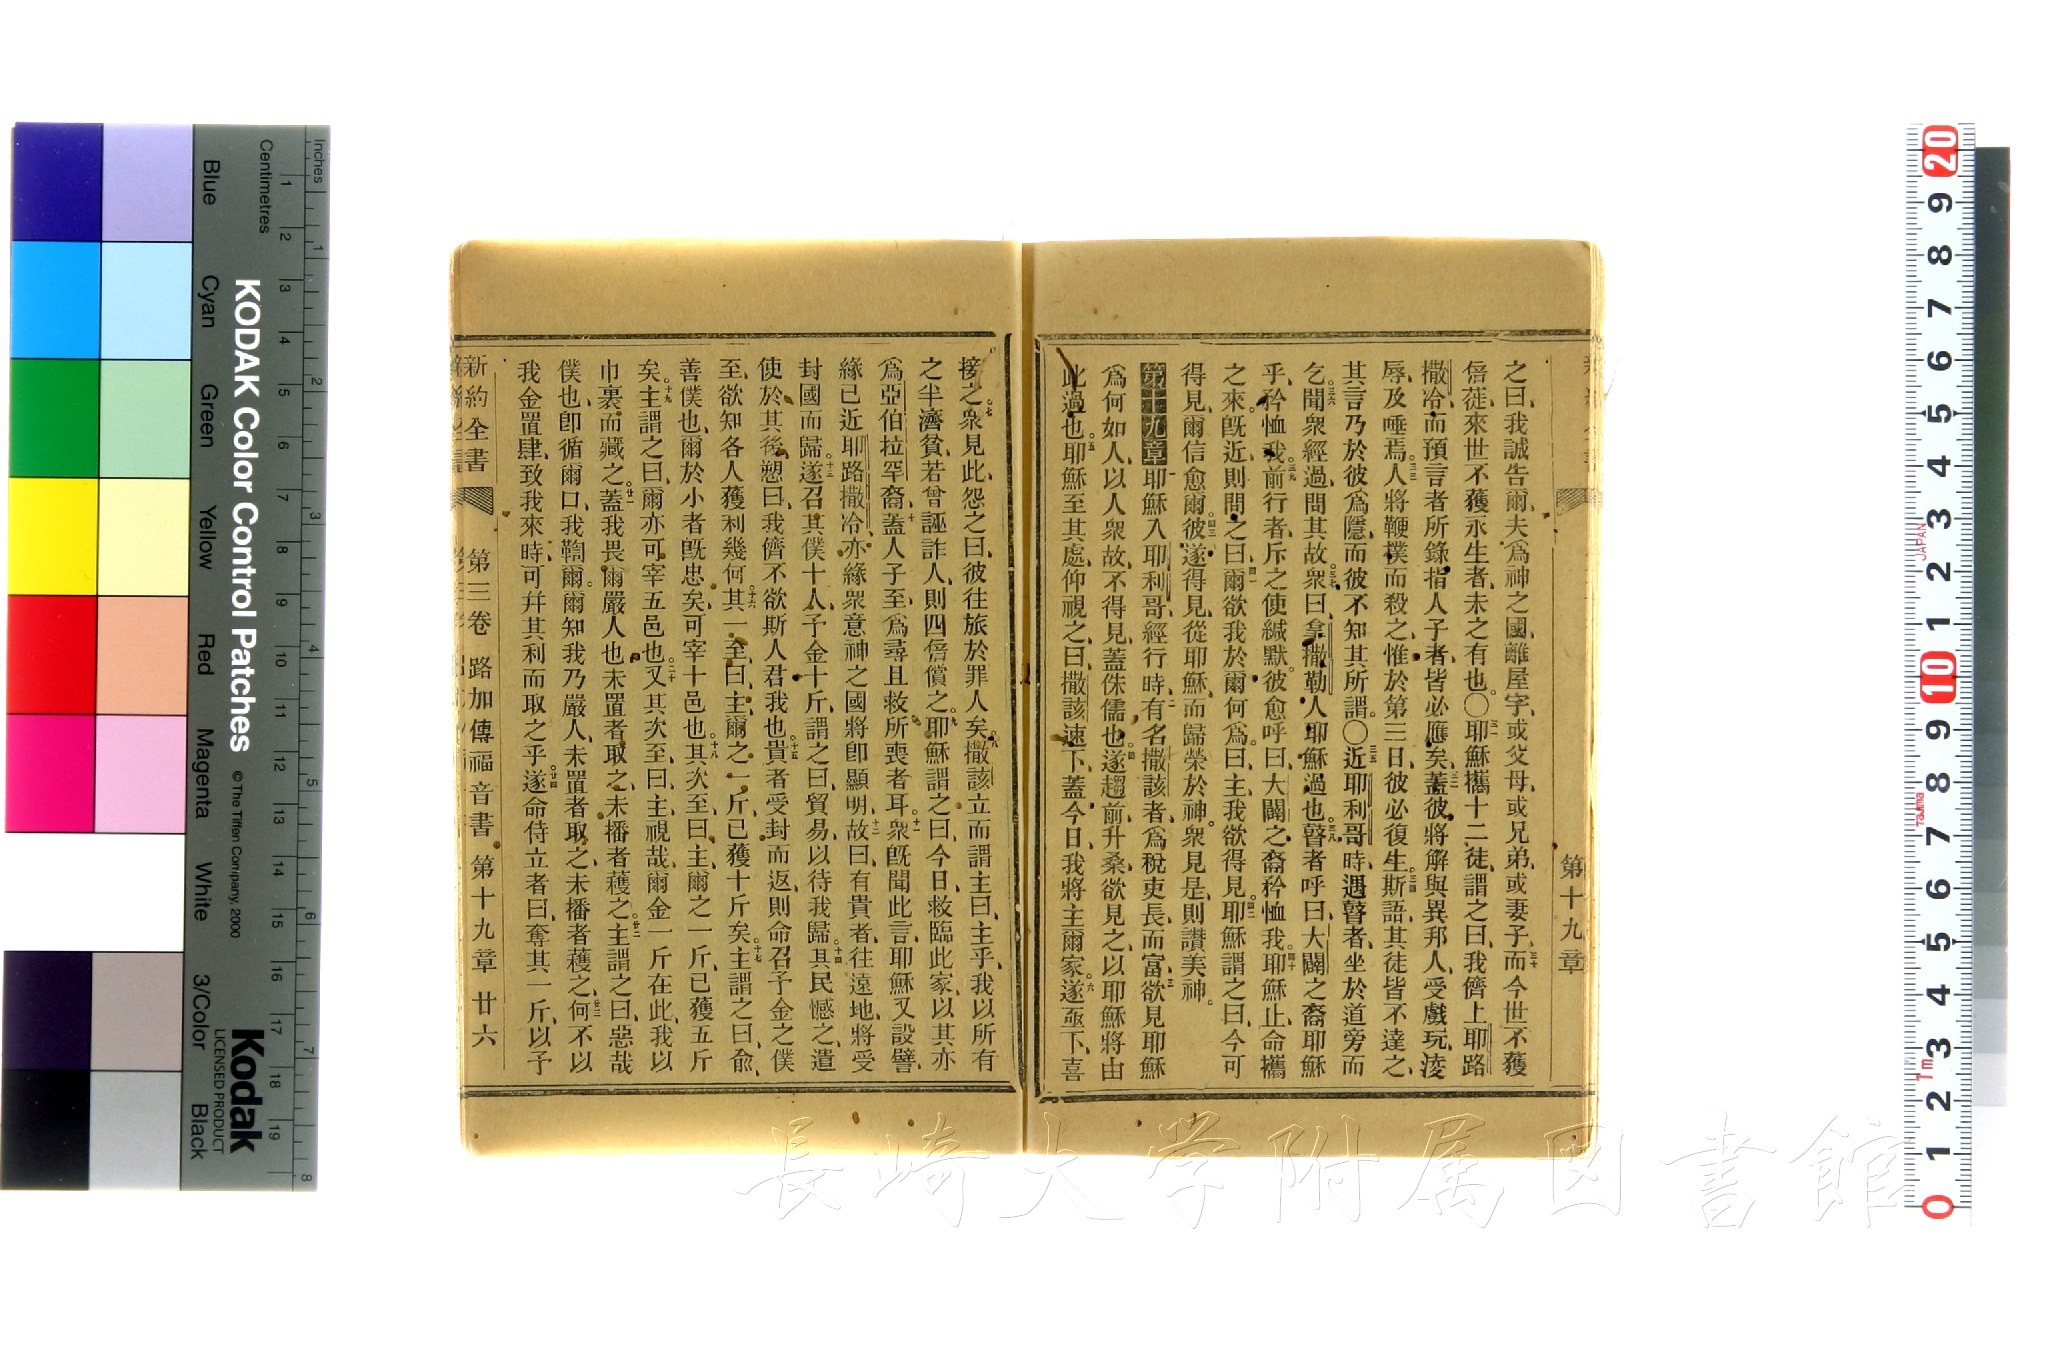 第十九章
之曰、我誠告爾、夫爲神之國、離屋宇、或父母、或兄弟、或妻子、三十而今世不獲
倍蓰、來世不獲永生者、未之有也。〇三一耶穌攜十二徒、謂之曰、我儕上耶路
撒冷、而預言者所錄、指人子者皆必應矣、三二蓋彼將解與異邦人、受戲玩、淩
辱、及唾焉、三三人將鞭撲而殺之、惟於第三日、彼必復生、三四斯語、其徒皆不達之、
其言乃於彼爲隱、而彼不知其所謂。〇三五近耶利哥時、遇瞽者、坐於道旁而
乞、三六聞衆經過、問其故、三七衆曰、拿撒勒人耶穌過也、三八瞽者呼曰、大闢之裔耶穌
乎、矜恤我、三九前行者斥之使緘默、彼愈呼曰、大闢之裔、矜恤我、四十耶穌止、命攜
之來、旣近、則問之曰、四一爾欲我於爾何爲、曰、主、我欲得見、四二耶穌謂之曰、今可
得見、爾信愈爾、四三彼遂得見、從耶穌、而歸榮於神、衆見是、則讚美神。
第十九章一耶穌入耶利哥、經行時、二有名撒該者、爲稅吏長、而富、三欲見耶穌
爲何如人、以人衆故、不得見、蓋侏儒也、四遂趨前、升桑欲見之、以耶穌將由
此過也、五耶穌至其處、仰視之、曰、撒該速下、蓋今日、我將主爾家、六遂亟下、喜
接之。七衆見此、怨之曰、彼往旅於罪人矣、八撒該立而謂主曰、主乎、我以所有
之半濟貧、若曾誣詐人、則四倍償之、九耶穌謂之曰、今日、救臨此家、以其亦
爲亞伯拉罕裔、十蓋人子至、爲尋且救所喪者耳、十一衆旣聞此言、耶穌又設譬、
緣已近耶路撒冷、亦緣衆意神之國將卽顯明、十二故曰、有貴者、往遠地、將受
封國而歸、十三遂召其僕十人、予金十斤、謂之曰、貿易以待我歸、十四其民憾之、遣
使於其後、愬曰、我儕不欲斯人君我也、十五貴者受封而返、則命召予金之僕
至、欲知各人獲利幾何、十六其一至曰、主、爾之一斤、已獲十斤矣、十七主謂之曰、俞、
善僕也、爾於小者旣忠矣、可宰十邑也、十八其次至曰、主、爾之一斤、已獲五斤
矣、十九主謂之曰、爾亦可宰五邑也、二十又其次至曰、主、視哉、爾金一斤在此、我以
巾裹而藏之、廿一蓋我畏爾嚴人也、未置者取之、未播者穫之、廿二主謂之曰、惡哉
僕也、卽循爾口、我鞫爾、爾知我乃嚴人、未置者取之、未播者穫之、廿三何不以
我金置肆、致我來時、可幷其利而取之乎、廿四遂命侍立者曰、奪其一斤、以予
新約全書 第三卷 路加傳福音書 第十九章 廿六
Inches
Centimetres
KODAK Color Control Patches
© The Tiffen Company, 2000
Kodak
LICENSED PRODUCT
Blue Cyan Green Yellow Red Magenta White 3/Color Black
JAPAN
Tajima
1m
長崎大学附属図書館